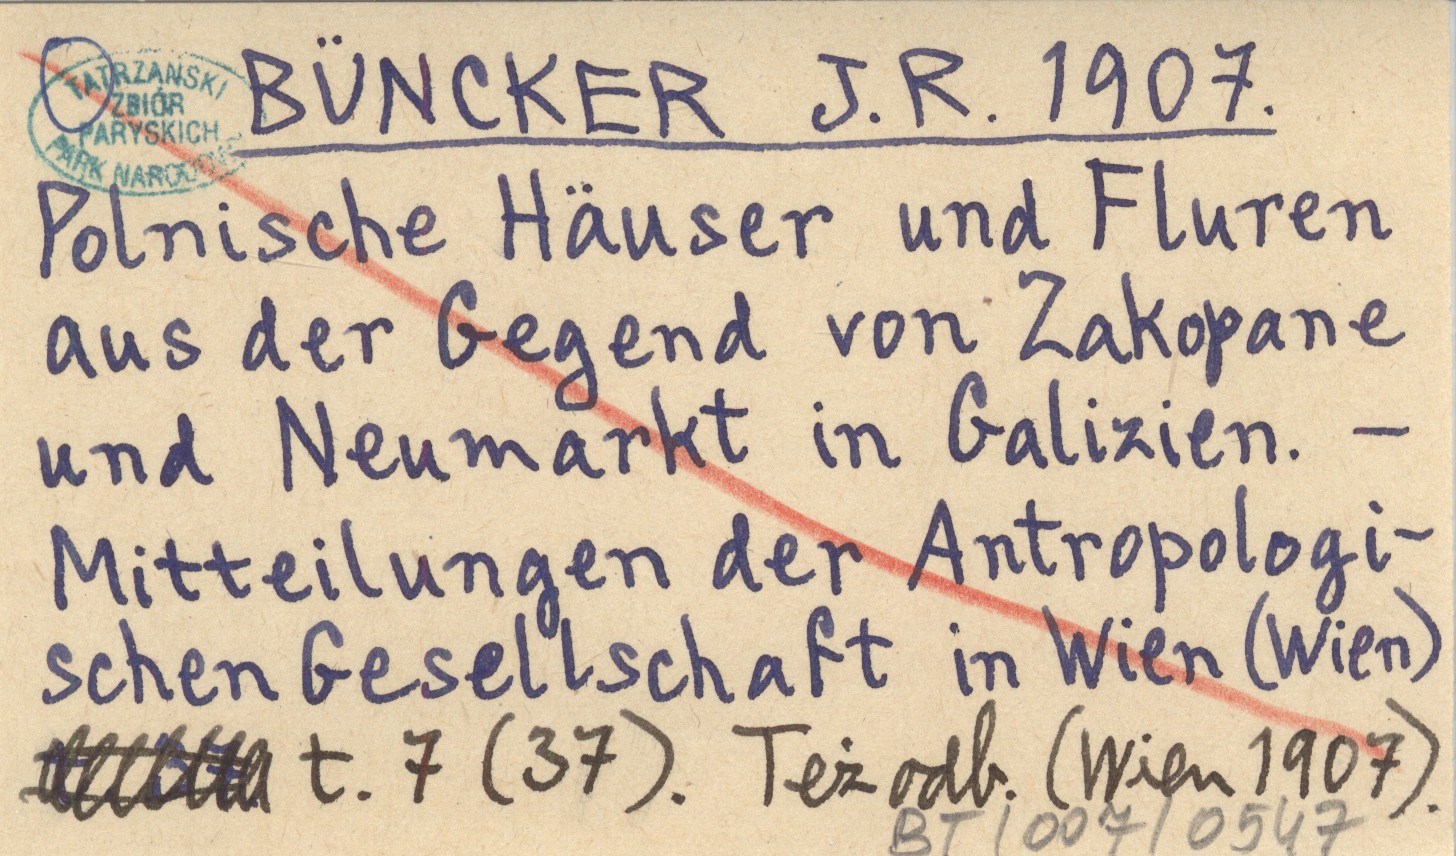 TATRZAŃSKI
ZBIÓR
PARYSKICH
PARK NARODOWY
BÜNCKER J.R. 1907.
Polnische Häuser und Fluren
aus der Gegend von Zakopane
und Neumarkt in Galizien. –
Mitteilungen der Antropologi-
schen Gesellschaft in Wien (Wien)
t. 7 (37). Też odb. (Wien 1907).
BT/007/0547